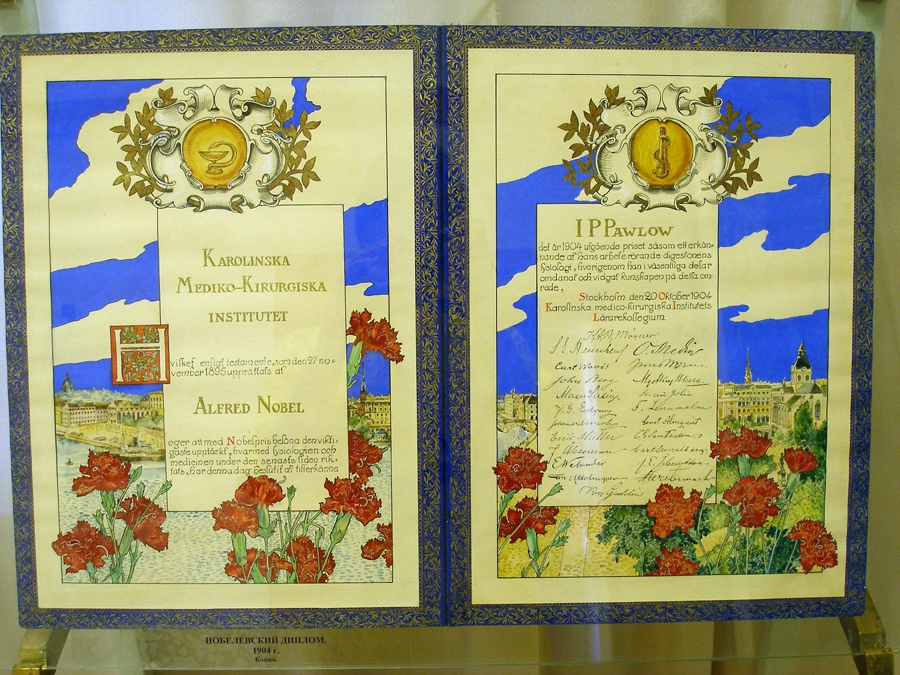 KAROLINSKA
MEDIKO-KIRURGISKA
INSTITUTET
H
vilket enligt testamente, som den 27 no-
vember 1895 upprättats af
ALFRED NOBEL
eger att med Nobelpris belöna den vikti-
gaste upptäckt, hvarmed fysiologien och
medicinen under den senaste tiden rik-
tats, har denna dag beslutit att tillerkänna
I P PAWLOW
det år 1904 utgående priset såsom ett erkän-
nande af hans arbete rörande digestionens
fysiologi, hvarigenom han i väsentliga delar
omdanat och vidgat kunskapen på detta om-
råde,
Stockholm den 20 Oktober 1904
Karolinska medico-kirurgiska Institutets
Lärarekollegium
Mörner
O. Medin
Carl Wallis
John Berg
Erik Müller
Carl Sundberg
НОБЕЛЕВСКИЙ ДИПЛОМ.
1904 г.
Копия.